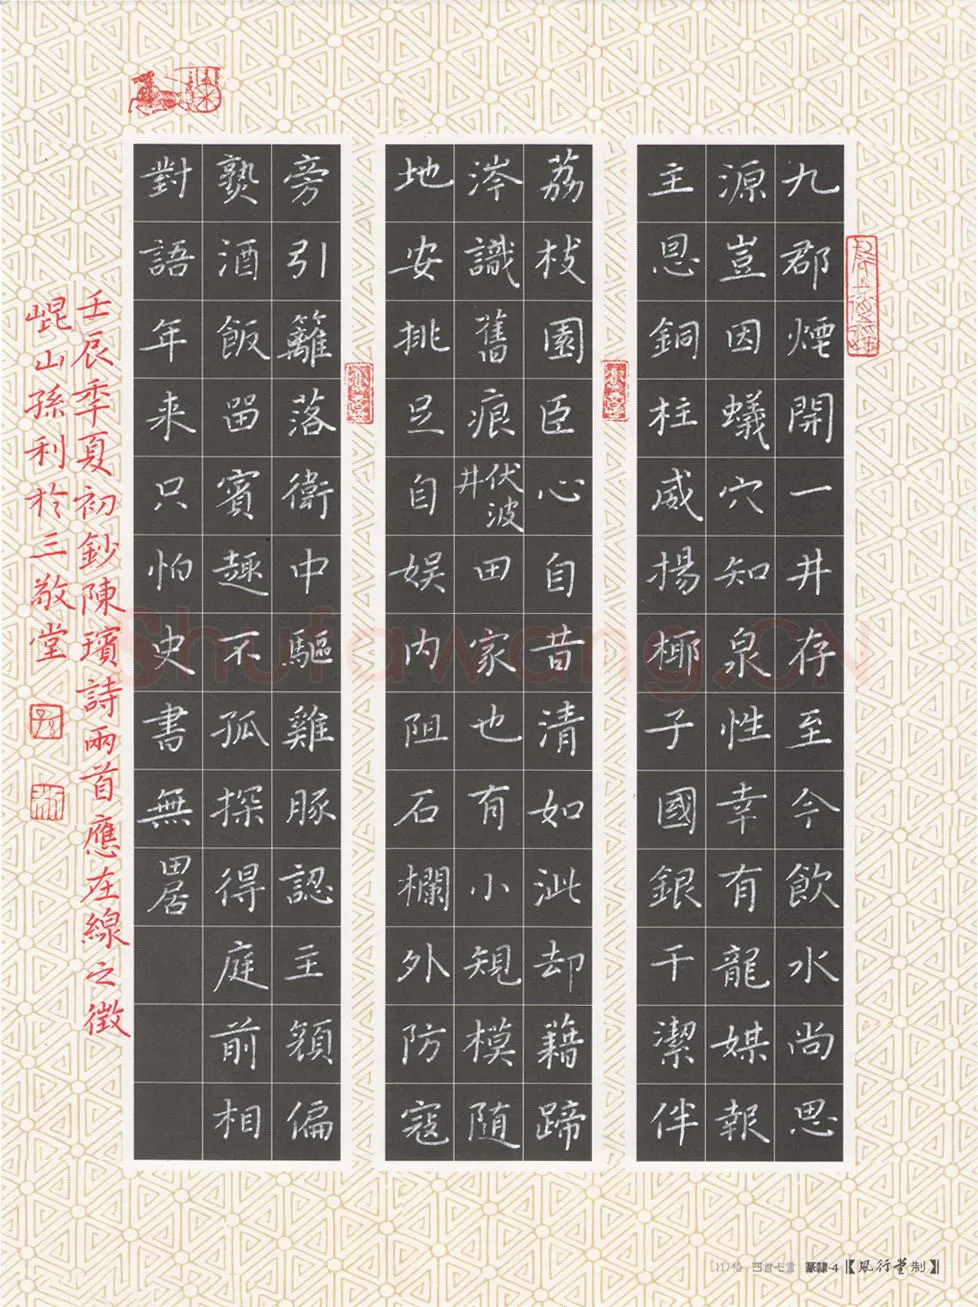 九郡煙開一井存至今飲水尚思
源豈因蟻穴知泉性幸有龍媒報
主恩銅柱威揚椰子國銀干潔伴
荔枝園臣心自昔清如泚却藉蹄
涔識舊痕伏波井田家也有小規模随
地安挑足自娱内阻石欄外防寇
旁引籬落衛中驅雞豚認主額偏
熟酒飯留賓趣不孤探得庭前相
對語年来只怕史書無
壬辰季夏初鈔陳璸詩兩首應在線之徵
崐山孫利於三敬堂
117格 四首七言 篆隸-4【風行堂制】
Shufawang.CN